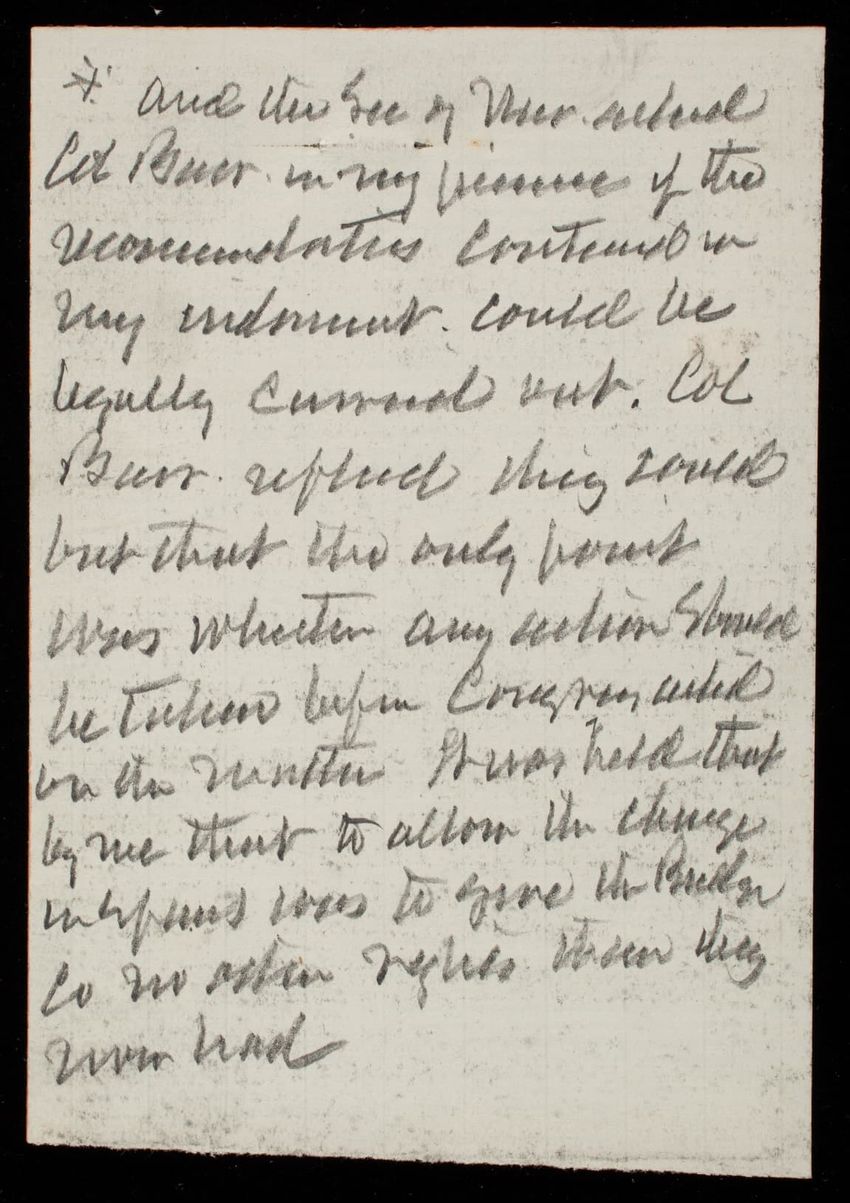 * And the Sec of War asked
Col Barr in my presence if the
recommendations contained in
my indorsment. could be
legally carried out. Col
Barr. replied they could
but that the only point
was whether any action should
be taken before Congress acted
on the matter It was held that
by me that to allow the change
in spans was to give the Bridge
Co no other rights than they
now had